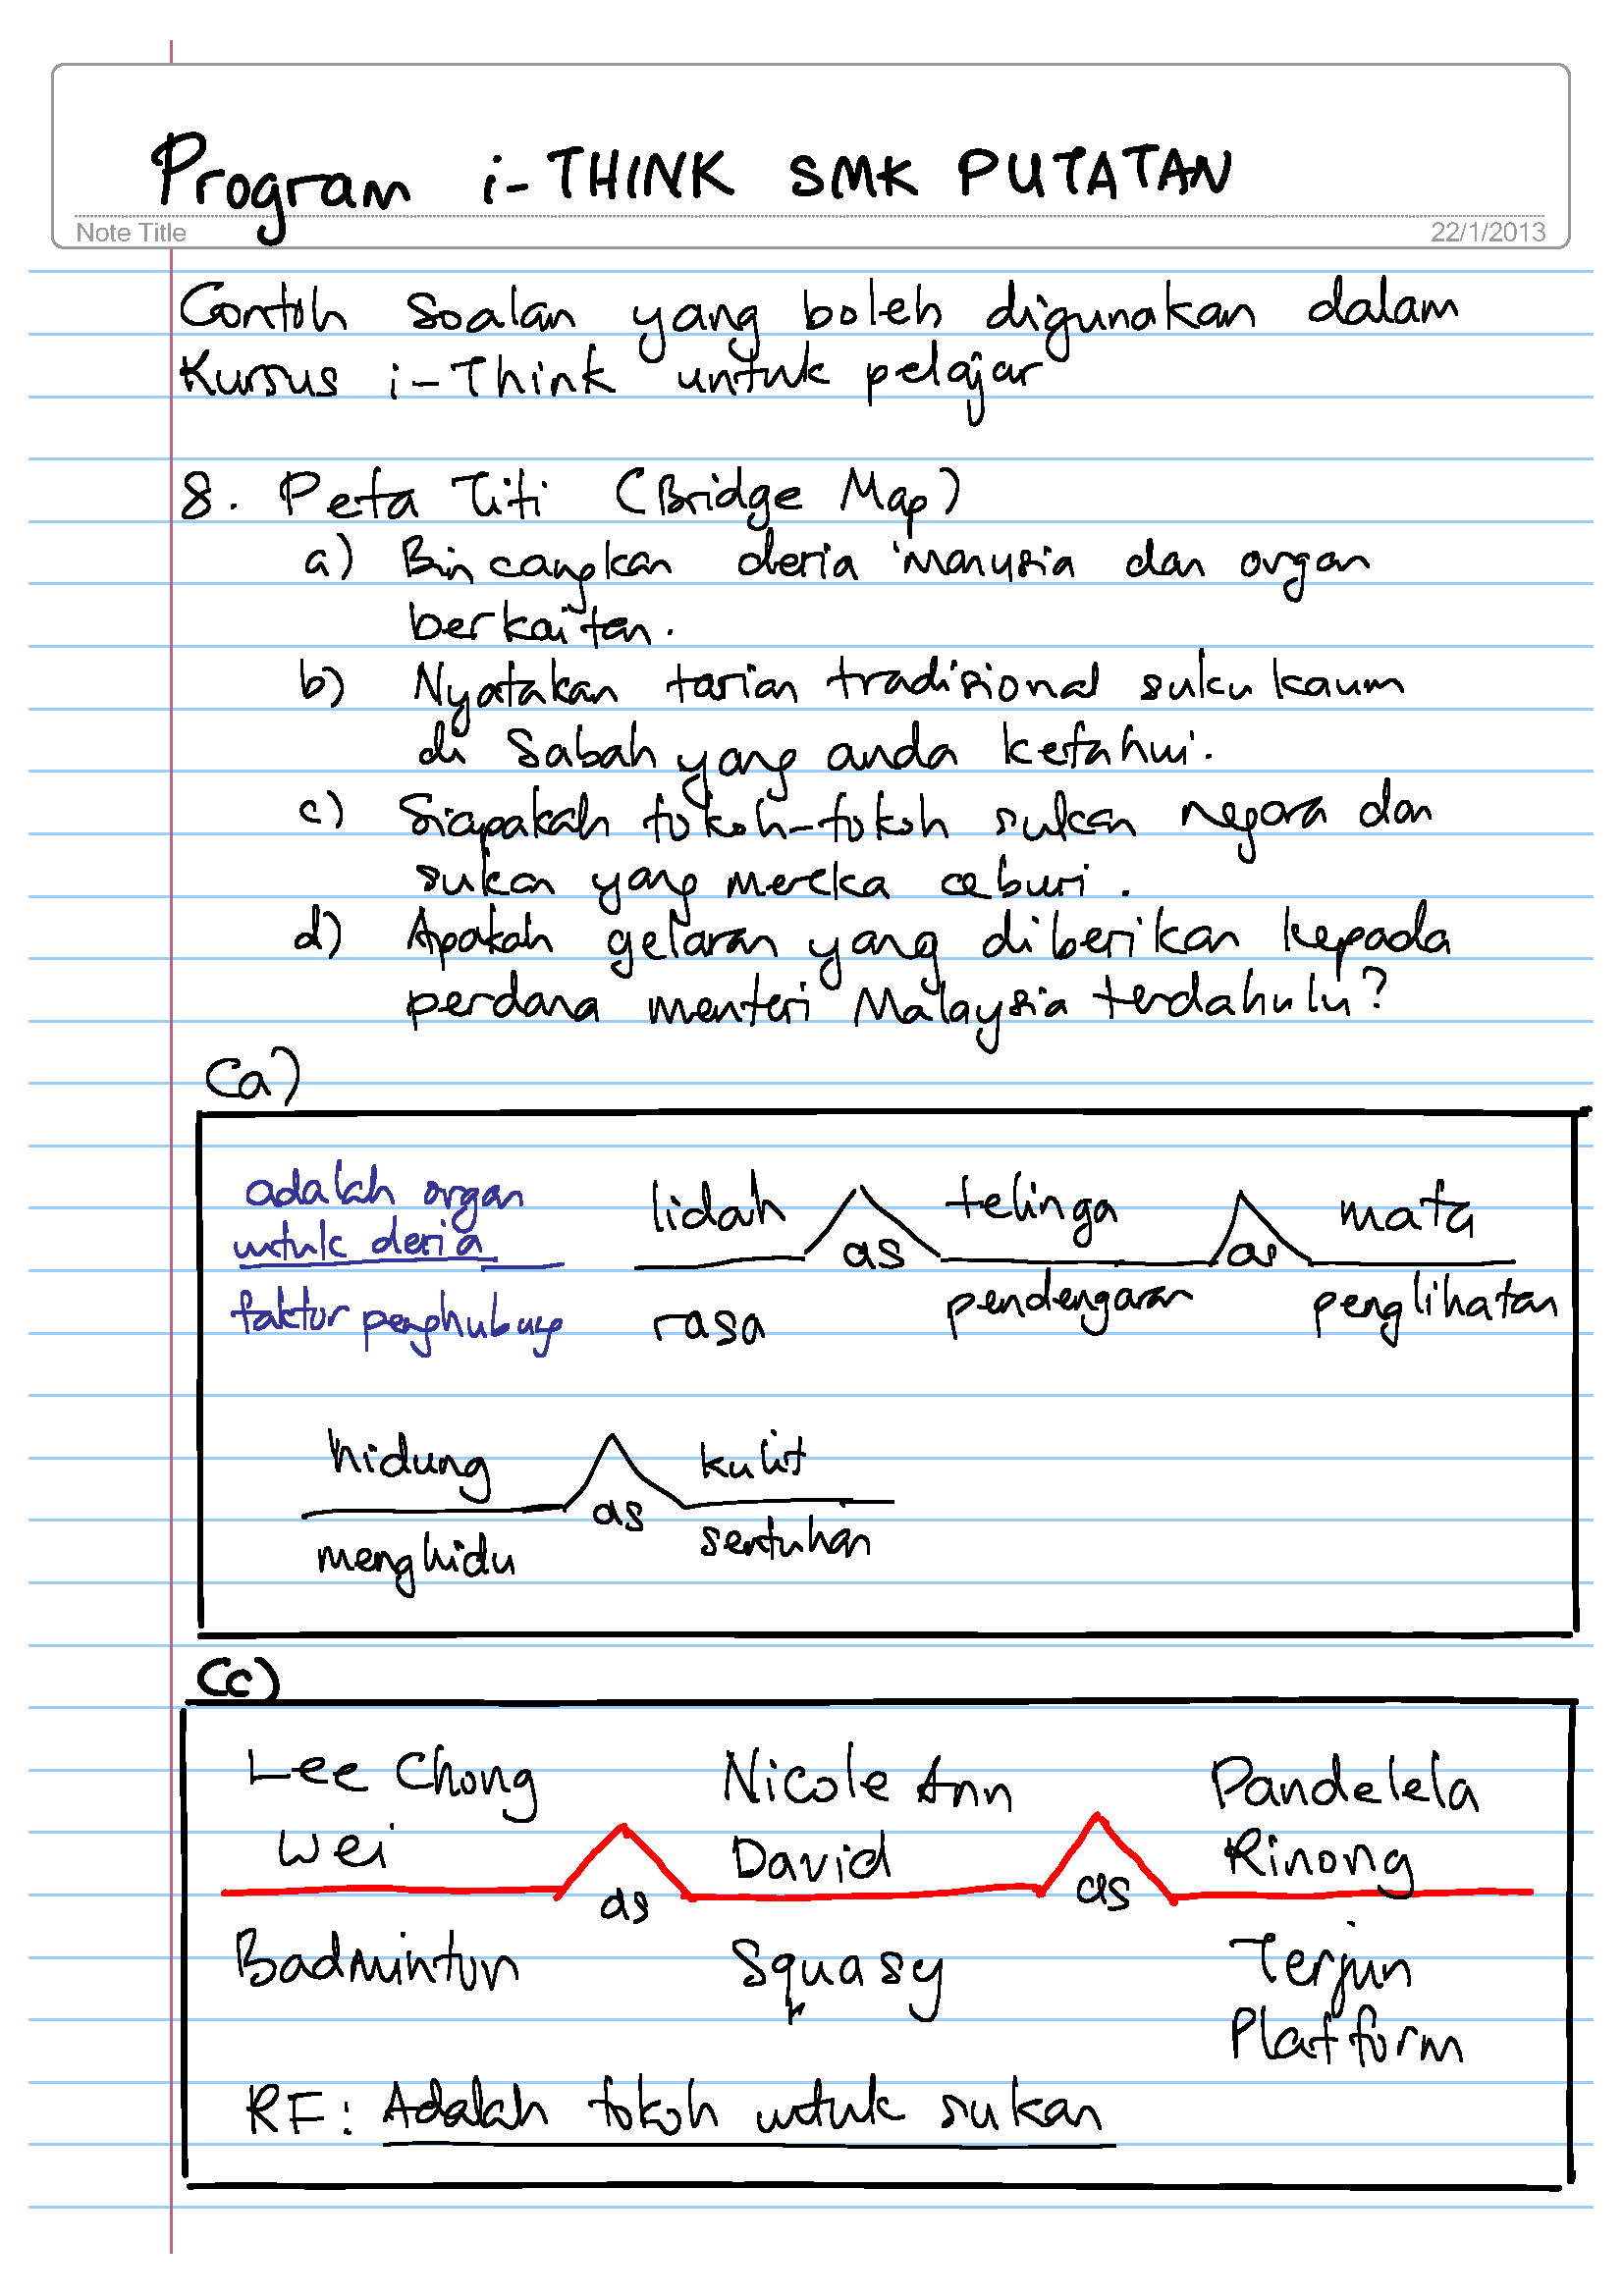 Program i-THINK SMK PUTATAN
Note Title 22/1/2013
Contoh Soalan yang boleh digunakan dalam
Kursus i-Think untuk pelajar
8. Peta Titi (Bridge Map)
a) Bincangkan deria manusia dan organ
berkaitan.
b) Nyatakan tarian tradisional suku kaum
di Sabah yang anda ketahui.
c) Siapakah tokoh-tokoh sukan negara dan
sukan yang mereka ceburi.
d) Apakah gelaran yang diberikan kepada
perdana menteri Malaysia terdahulu?
(a)
adalah organ
untuk deria
faktor penghubung
lidah telinga mata
as as
rasa pendengaran penglihatan
hidung kulit
as
menghidu sentuhan
(c)
Lee Chong Nicole Ann Pandelela
Wei David Rinong
as as
Badminton Squasy Terjun
Platform
RF: Adalah tokoh untuk sukan